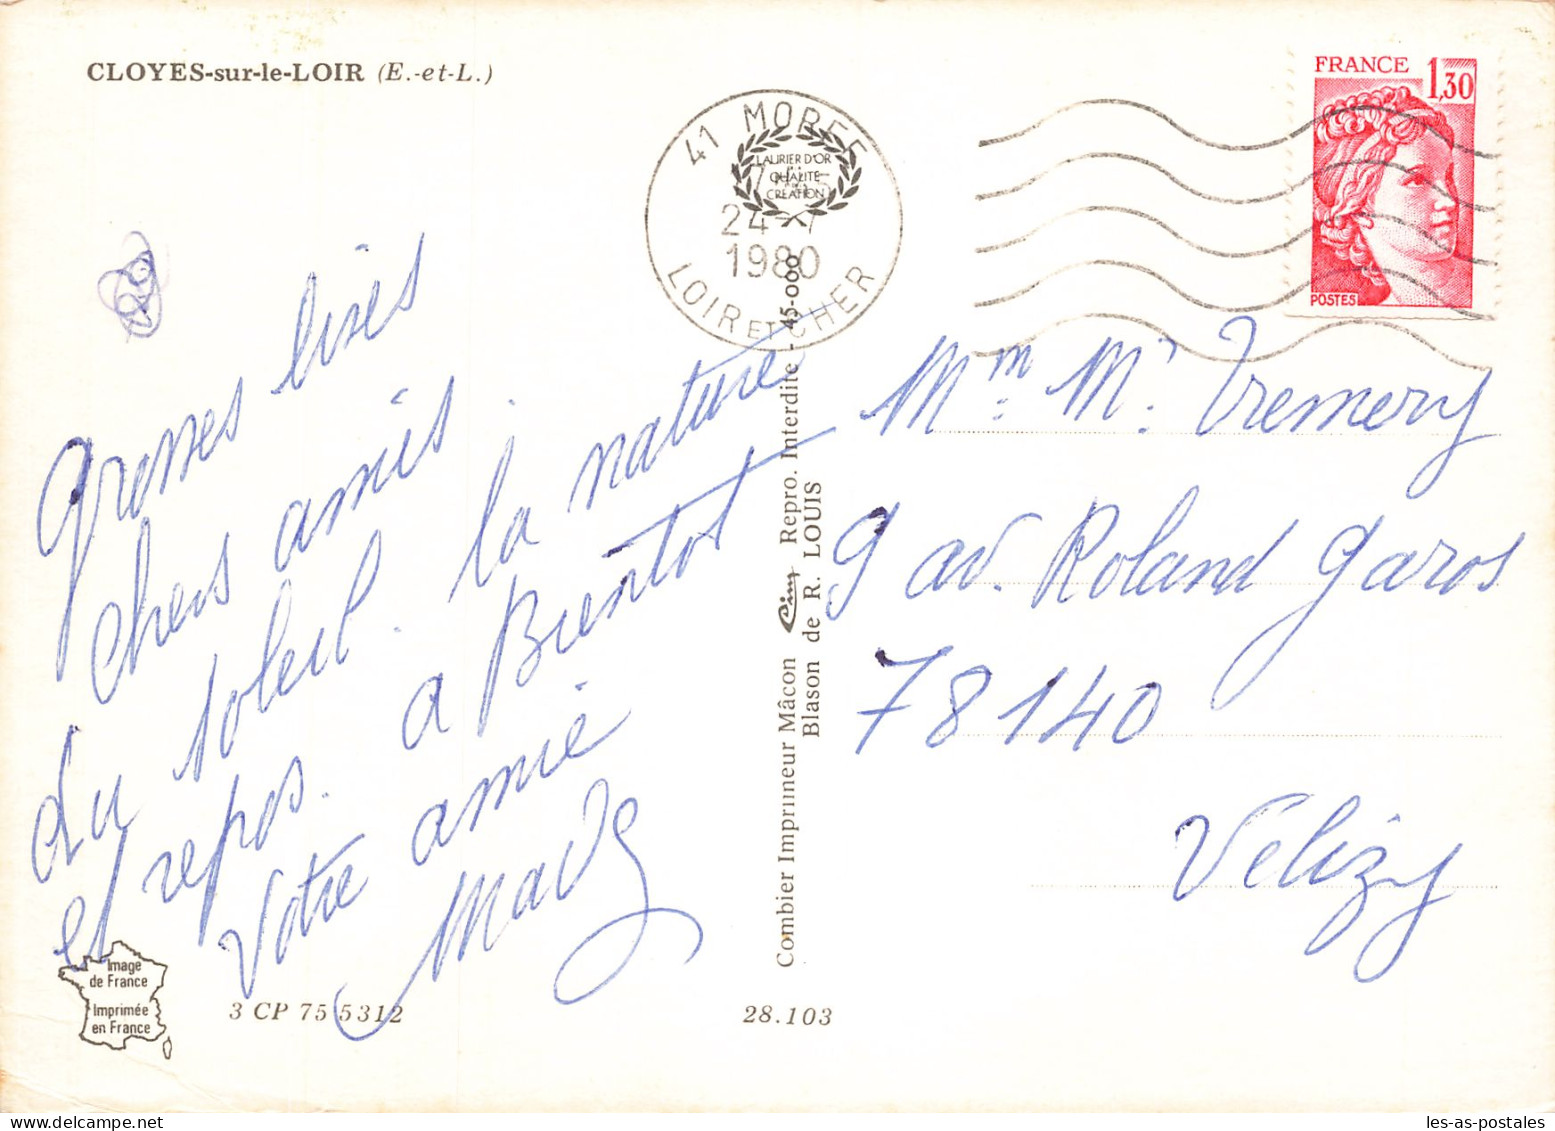 CLOYES-sur-le-LOIR (E.-et-L.)
41 MOREE
24-7
1980
LOIR ET CHER
LAURIER D'OR
QUALITE
CREATION
FRANCE
1,30
POSTES
grosses bises
chers amis.
du soleil. la nature
et repos. a Bientot
votre amie
Mm. Mr. Tremery
9 av. Roland garos
78140
Vélizy
Combier Imprimeur Mâcon Cim Repro. Interdite - 45-000
Blason de R. LOUIS
Image
de France
Imprimée
en France
3 CP 75 5312
28.103
les-as-postales